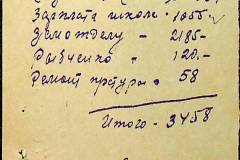 Зарплата школе - 1055 -
Земотделу " - 2185 -
Рыбченко " - 120 -
Ремонт претуры " 58
Итого - 3458